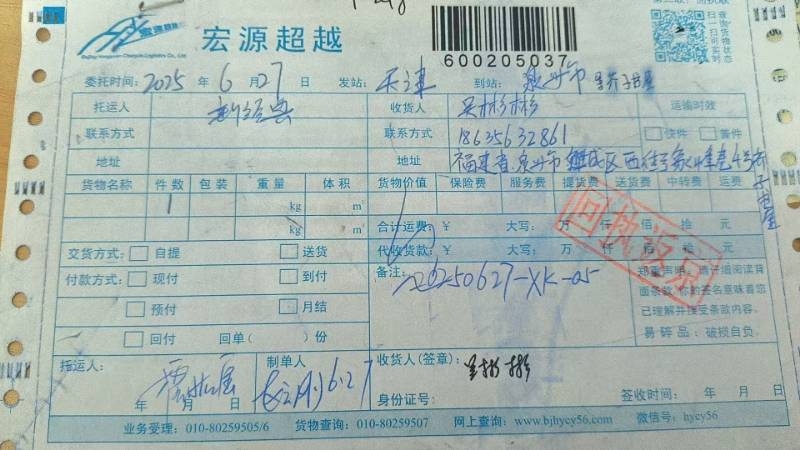 宏源超越
Beijing Hongyuan Chaoyue Logistics Co., Ltd
600205037
委托时间：2025 年 6 月 27 日 发站：天津 到站：泉州市
托运人 新经典 收货人 吴彬彬 运输时效
联系方式 联系方式 18635632861 快件 普件
地址 地址 福建省泉州市鲤城区西街
货物名称 件数 包装 重量 体积 货物价值 保险费 服务费 提货费 送货费 中转费 运费
1 kg m³
kg m³ 合计运费：￥ 大写： 万 仟 佰 拾 元
交货方式： 自提 送货 代收货款：￥ 大写： 万 仟 佰 拾 元
回执返京
付款方式： 现付 到付 备注： 20250627-XK-05
郑重声明：请仔细阅读背
面条款 你的签名意味着您
已理解并接受条款内容。
预付 月结
回付 回单（ ）份 易碎品：破损自负。
托运人： 制单人 收货人（签章）：
6.27
年 月 日 身份证号： 签收时间： 年 月 日
业务受理：010-80259505/6 货物查询：010-80259507 网上查询：www.bjhycy56.com 微信号：hycy56